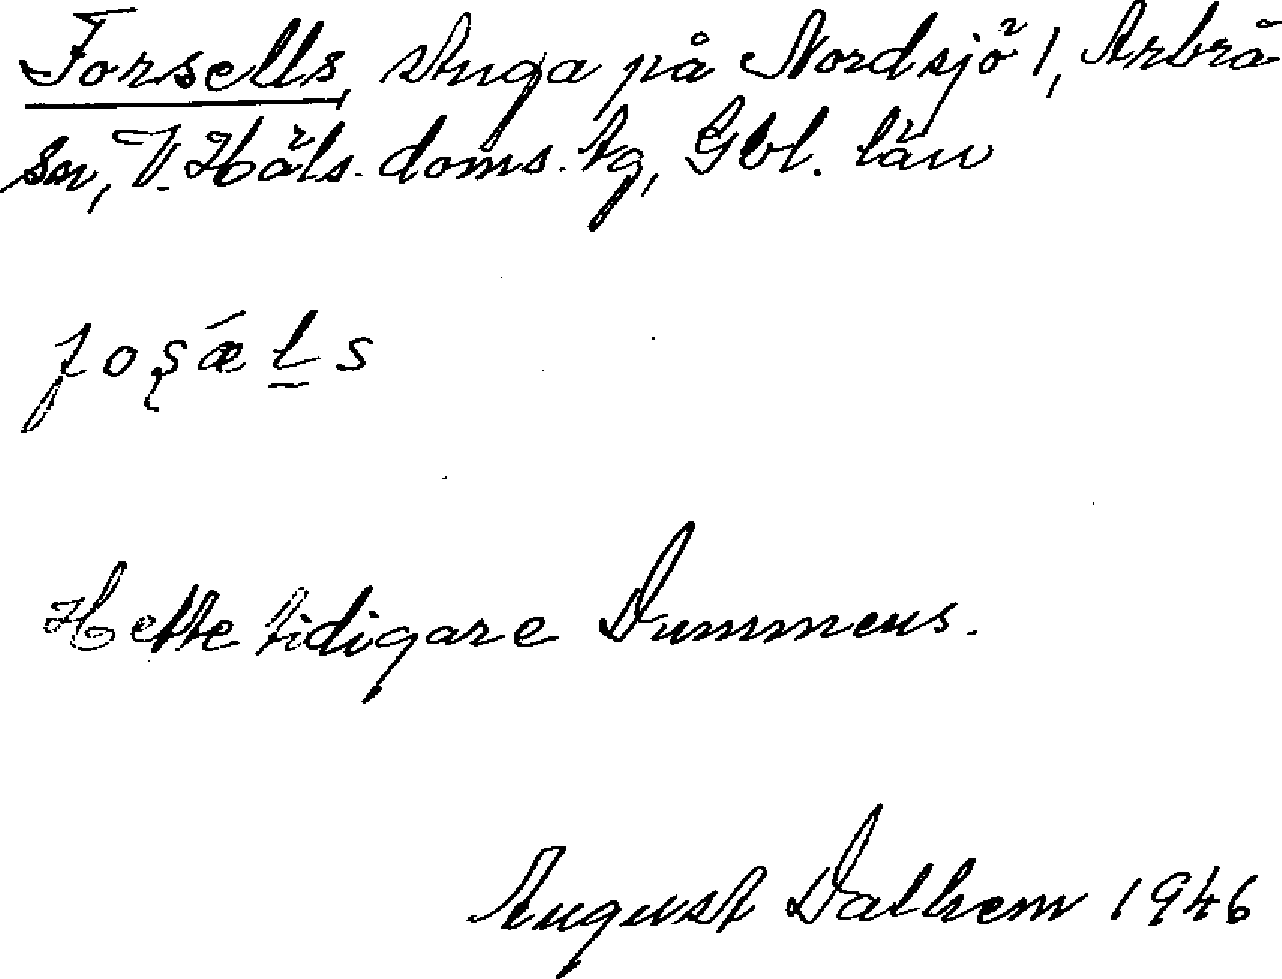 Forsells, stuga på Nordsjö 1, Arbrå
sn, V. Häls. doms. tg, Gbl. län
foʂǽḷs
Hette tidigare Dummens.
August Dalhem 1946